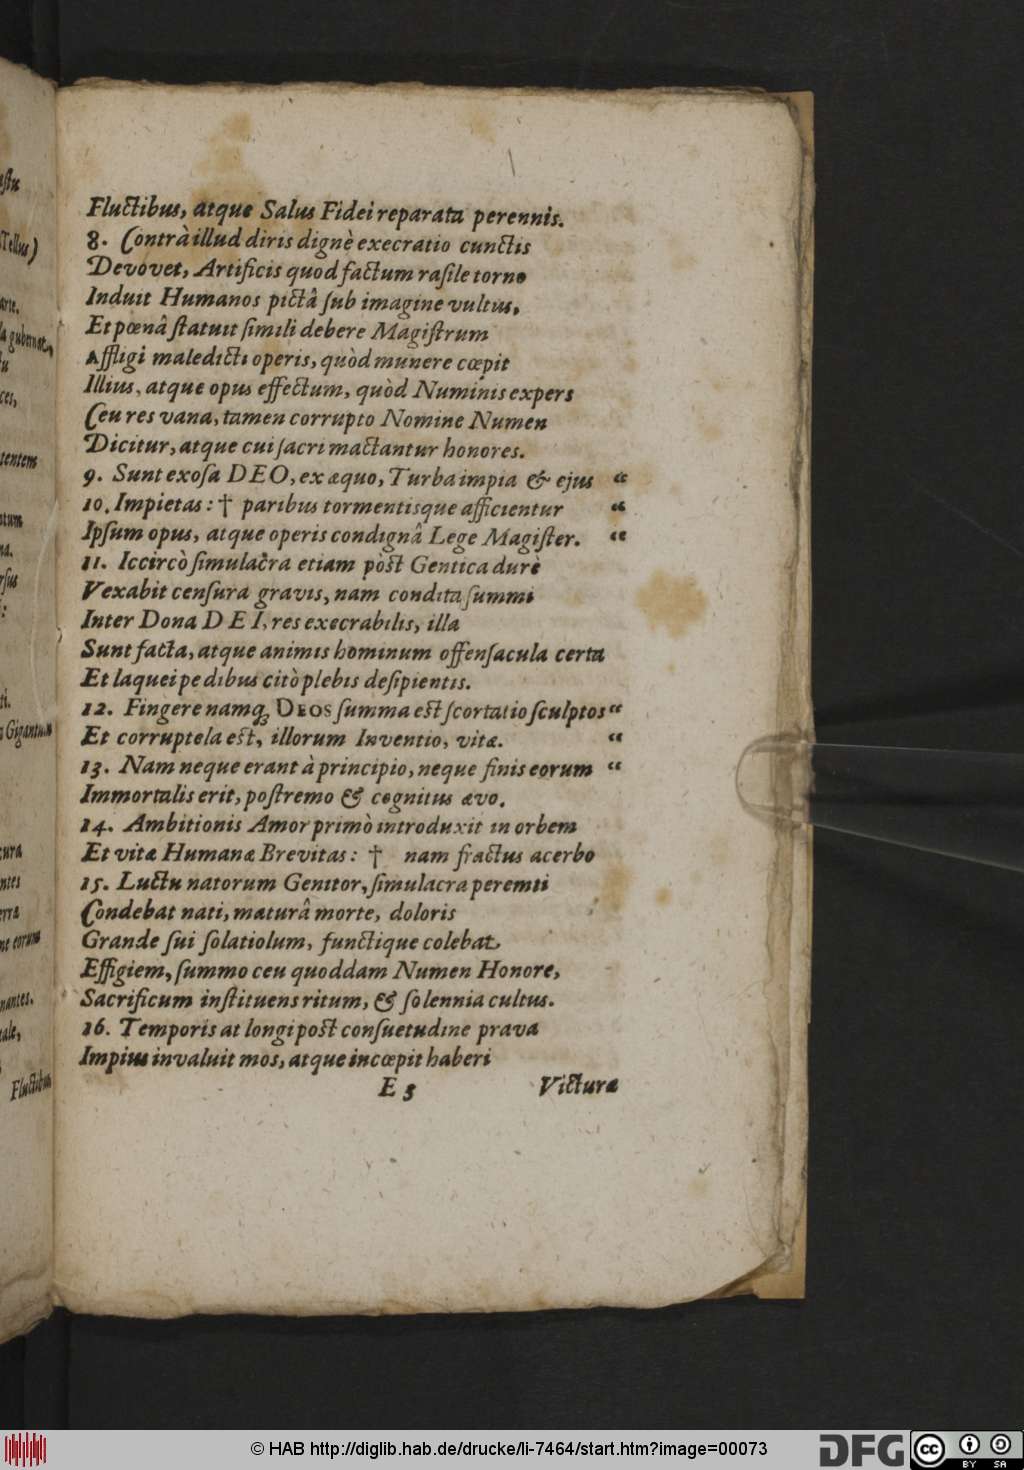 Fluctibus, atque Salus Fidei reparata perennis.
8. Contrà illud diris dignè execratio cunctis
Devovet, Artificis quod factum rasile torno
Induit Humanos pictâ sub imagine vultus,
Et pœnâ statuit simili debere Magistrum
Affligi maledicti operis, quòd munere cœpit
Illius, atque opus effectum, quòd Numinis expers
Ceu res vana, tamen corrupto Nomine Numen
Dicitur, atque cui sacri mactantur honores.
9. Sunt exosa DEO, ex æquo, Turba impia & ejus “
10. Impietas: † paribus tormentisque afficientur “
Ipsum opus, atque operis condignâ Lege Magister. “
11. Iccircò simulacra etiam pòst Gentica durè
Vexabit censura gravis, nam condita summi
Inter Dona DEI, res execrabilis, illa
Sunt facta, atque animis hominum offensacula certa
Et laquei pedibus citò plebis desipientis.
12. Fingere namq; DEOS summa est scortatio sculptos “
Et corruptela est, illorum Inventio, vitæ. “
13. Nam neque erant à principio, neque finis eorum “
Immortalis erit, postremo & cognitus ævo.
14. Ambitionis Amor primò introduxit in orbem
Et vitæ Humanæ Brevitas: † nam fractus acerbo
15. Luctu natorum Genitor, simulacra peremti
Condebat nati, maturâ morte, doloris
Grande sui solatiolum, functique colebat
Effigiem, summo ceu quoddam Numen Honore,
Sacrificum instituens ritum, & solennia cultus.
16. Temporis at longi post consuetudine prava
Impius invaluit mos, atque incœpit haberi
E 5 Victuræ
Tellus)
gubernat,
Gigantum
eorum
Fluctibus
© HAB http://diglib.hab.de/drucke/li-7464/start.htm?image=00073
DFG
cc BY SA